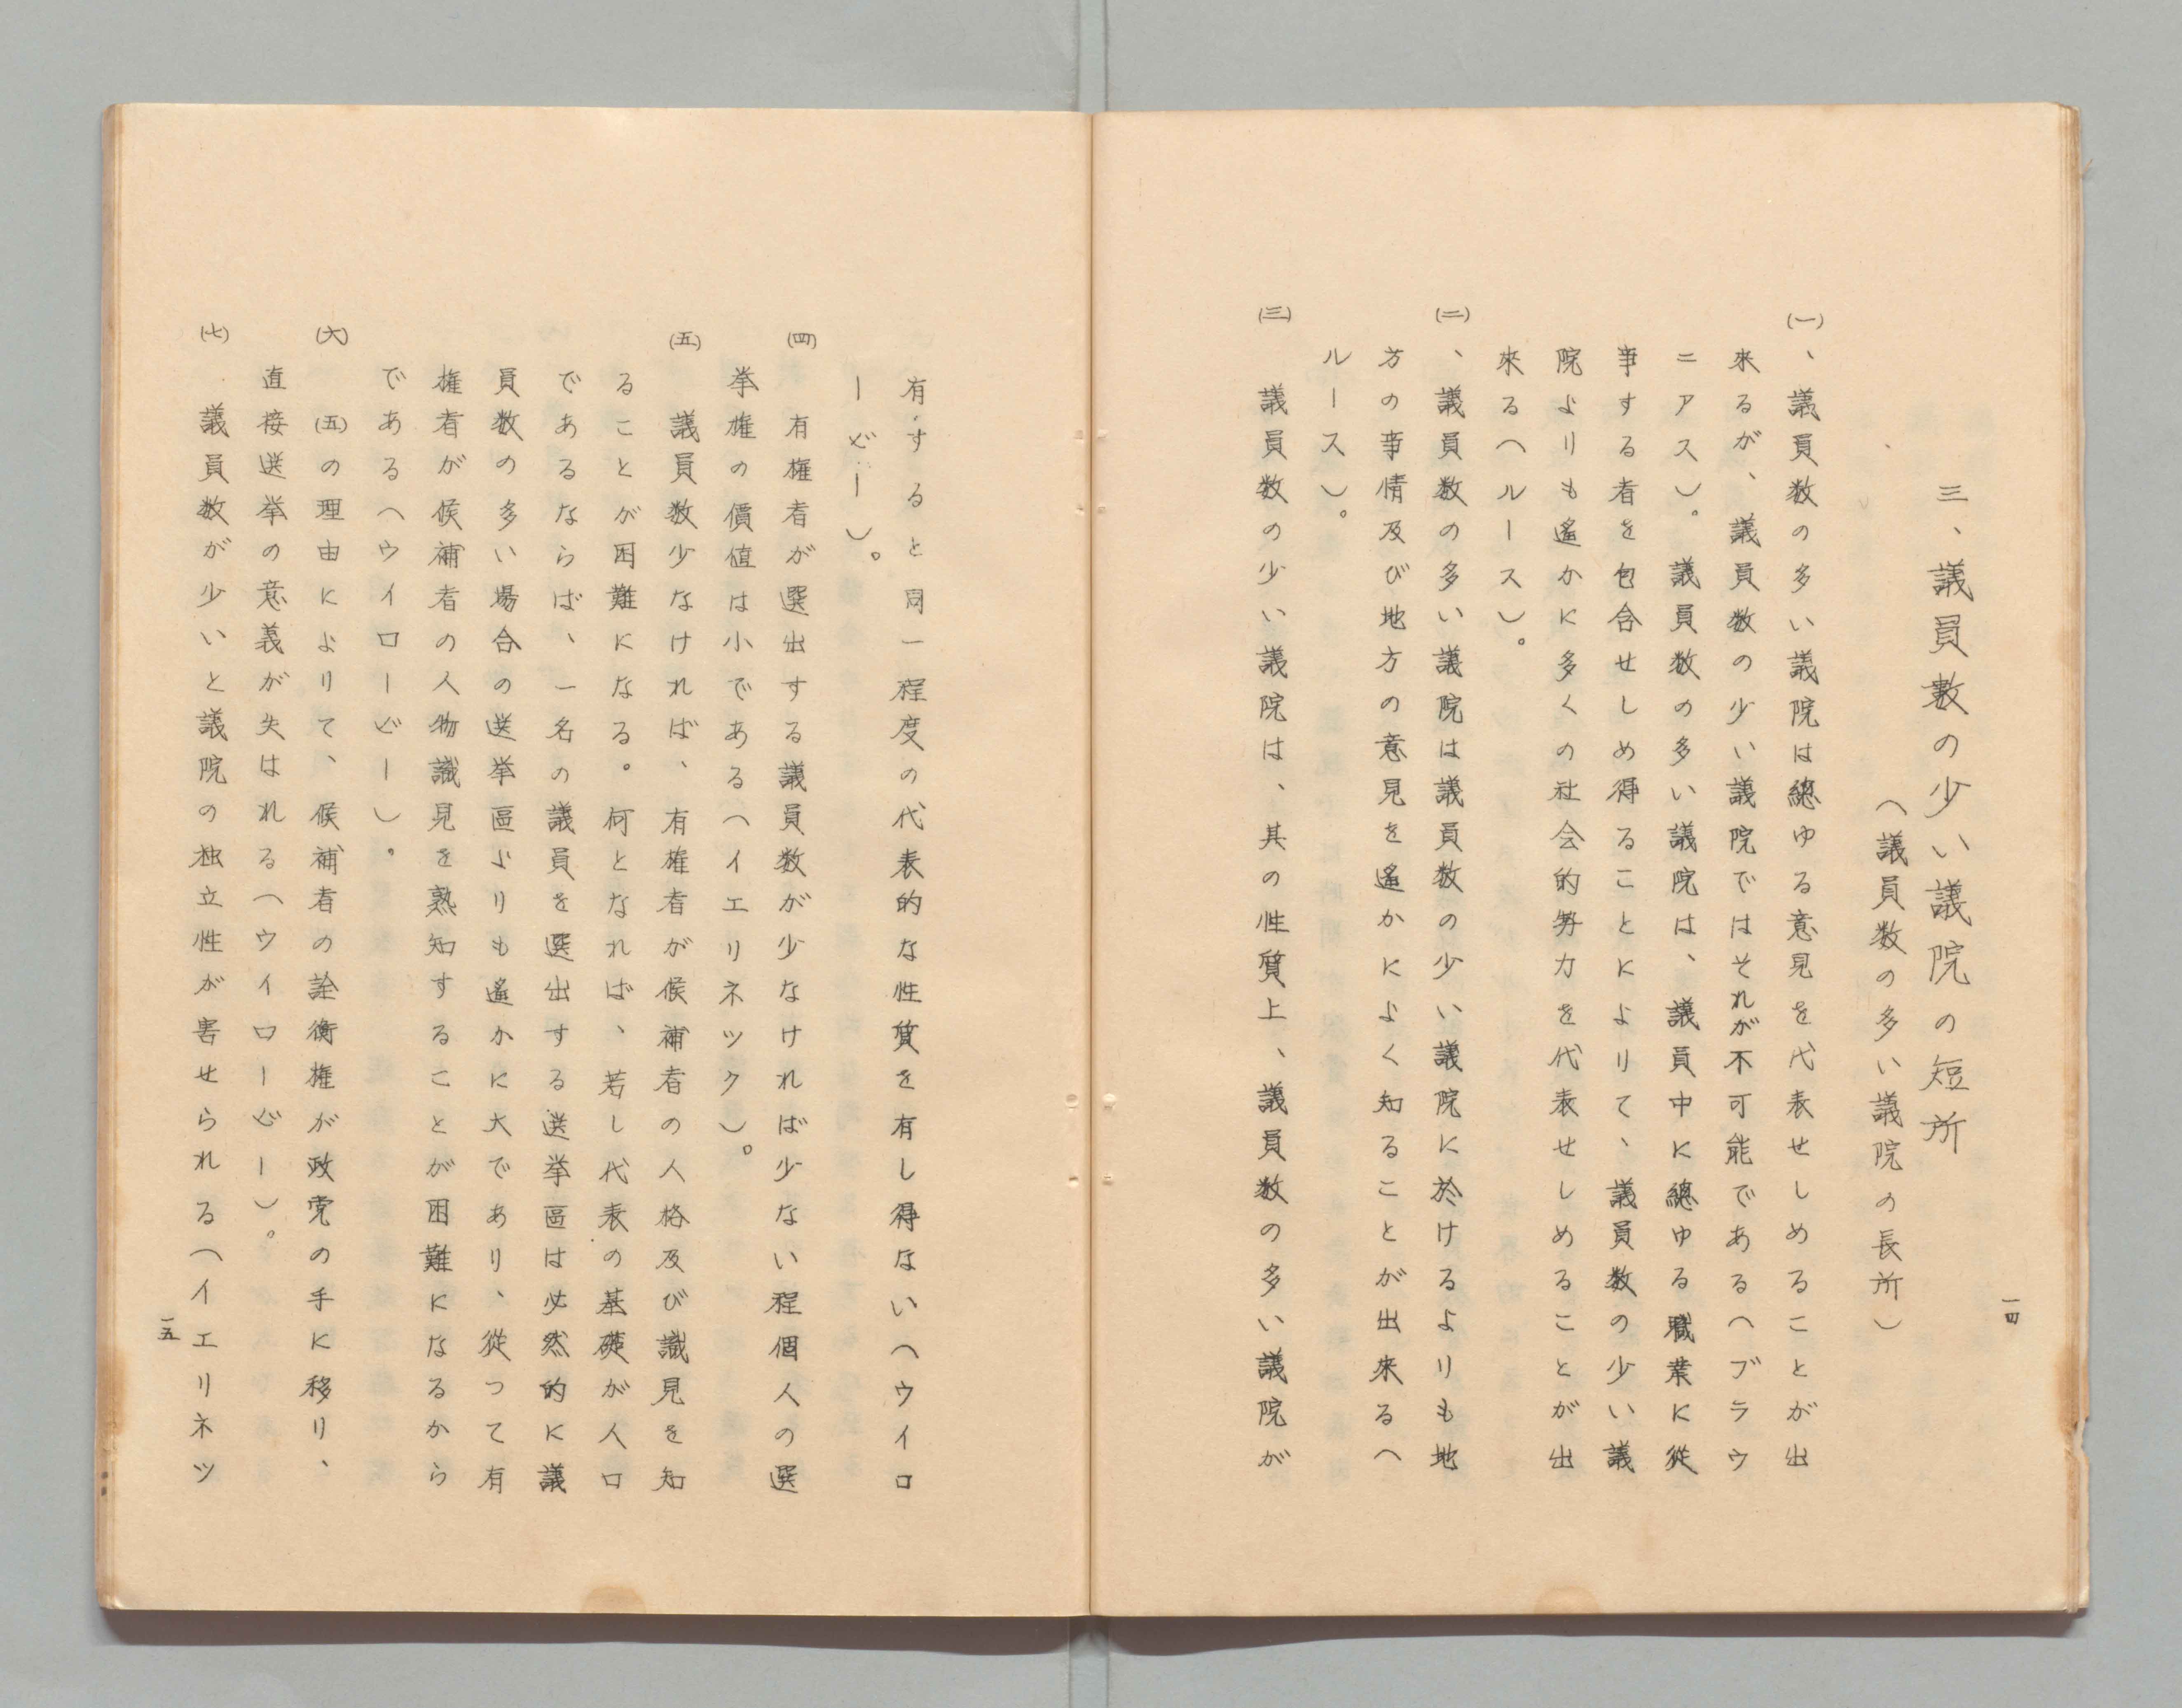 三、議員數の少い議院の短所
（議員数の多い議院の長所）
(一)、議員数の多い議院は總ゆる意見を代表せしめることが出
来るが、議員数の少い議院ではそれが不可能である（ブラウ
ニアス）。議員数の多い議院は、議員中に總ゆる職業に從
事する者を包含せしめ得ることによりて、議員数の少い議
院よりも遙かに多くの社会的勢力を代表せしめることが出
來る（ルース）。
(二)、議員数の多い議院は議員数の少い議院に於けるよりも地
方の事情及び地方の意見を遙かによく知ることが出来る（
ルース）。
(三)　議員数の少い議院は、其の性質上、議員数の多い議院が
一四
有すると同一程度の代表的な性質を有し得ない（ウイロ
ービー）。
(四)　有権者が選出する議員数が少なければ少ない程個人の選
挙権の價値は小である（イエリネツク）。
(五)　議員数少なければ、有権者が候補者の人格及び識見を知
ることが困難になる。何となれば、若し代表の基礎が人口
であるならば、一名の議員を選出する選挙區は必然的に議
員数の多い場合の選挙區よりも遙かに大であり、從つて有
権者が候補者の人物識見を熟知することが困難になるから
である（ウイロービー）。
(六)　(五)の理由によりて、候補者の詮衡権が政党の手に移り、
直接選挙の意義が失はれる（ウイロービー）。
(七)　議員数が少いと議院の独立性が害せられる（イエリネツ
一五